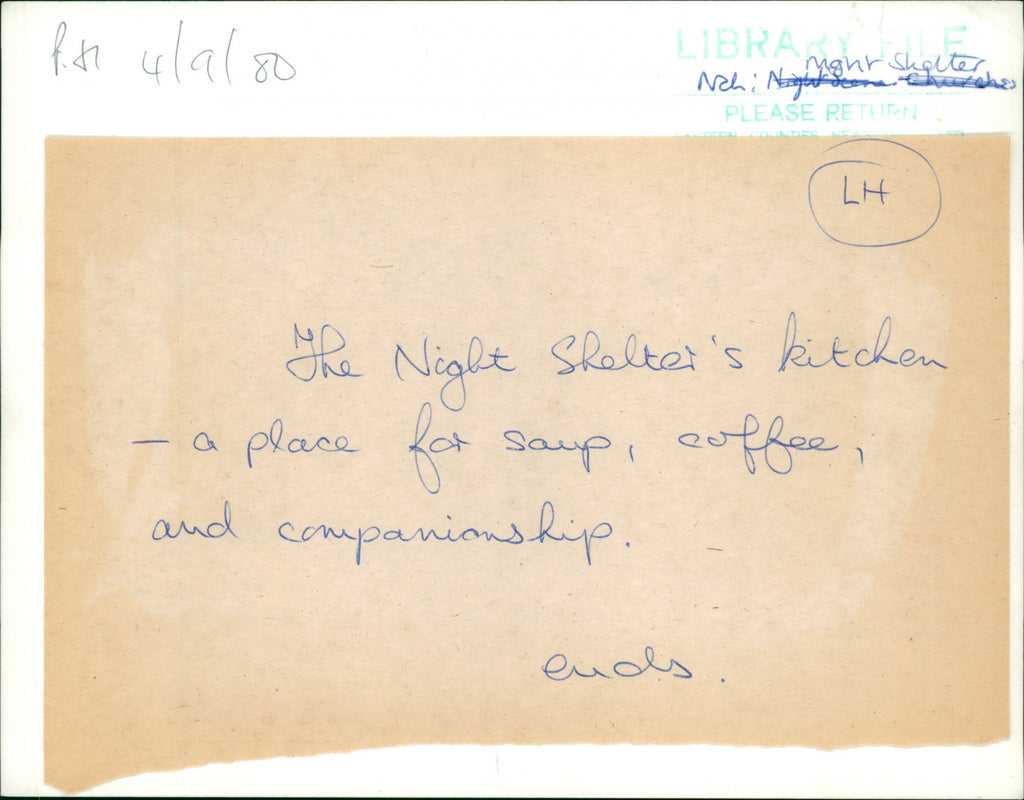 4/9/80
LIBRARY FILE
Night Shelter
Nch: Night Scenes Churches
PLEASE RETURN
EASTERN COUNTIES NEWSPAPERS LTD
LH
The Night Shelter's kitchen
— a place for soup, coffee,
and companionship.
ends.